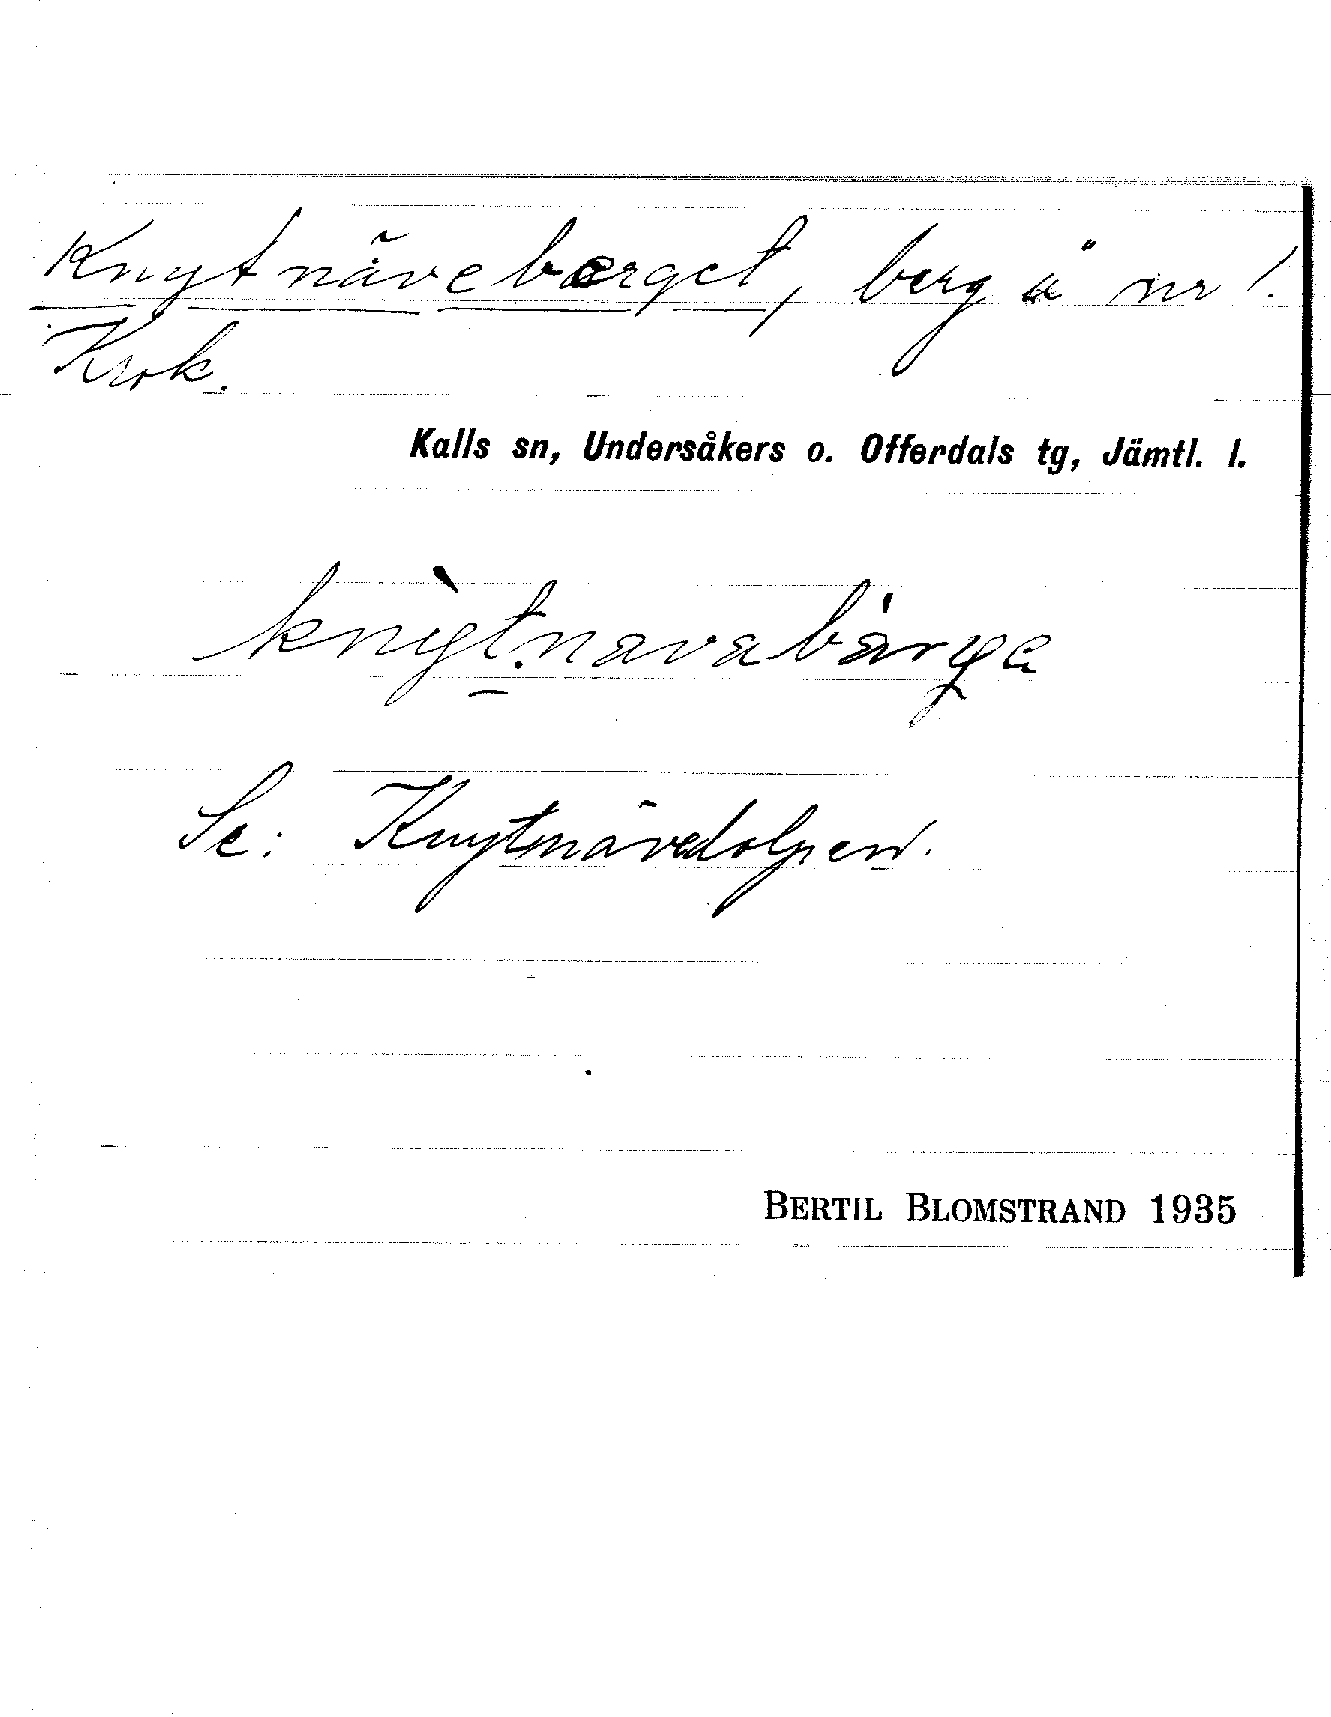 Knytnäveberget, berg å nr 1.
Krok.
Kalls sn, Undersåkers o. Offerdals tg, Jämtl. l.
Se: Knytnävedolpen.
BERTIL BLOMSTRAND 1935